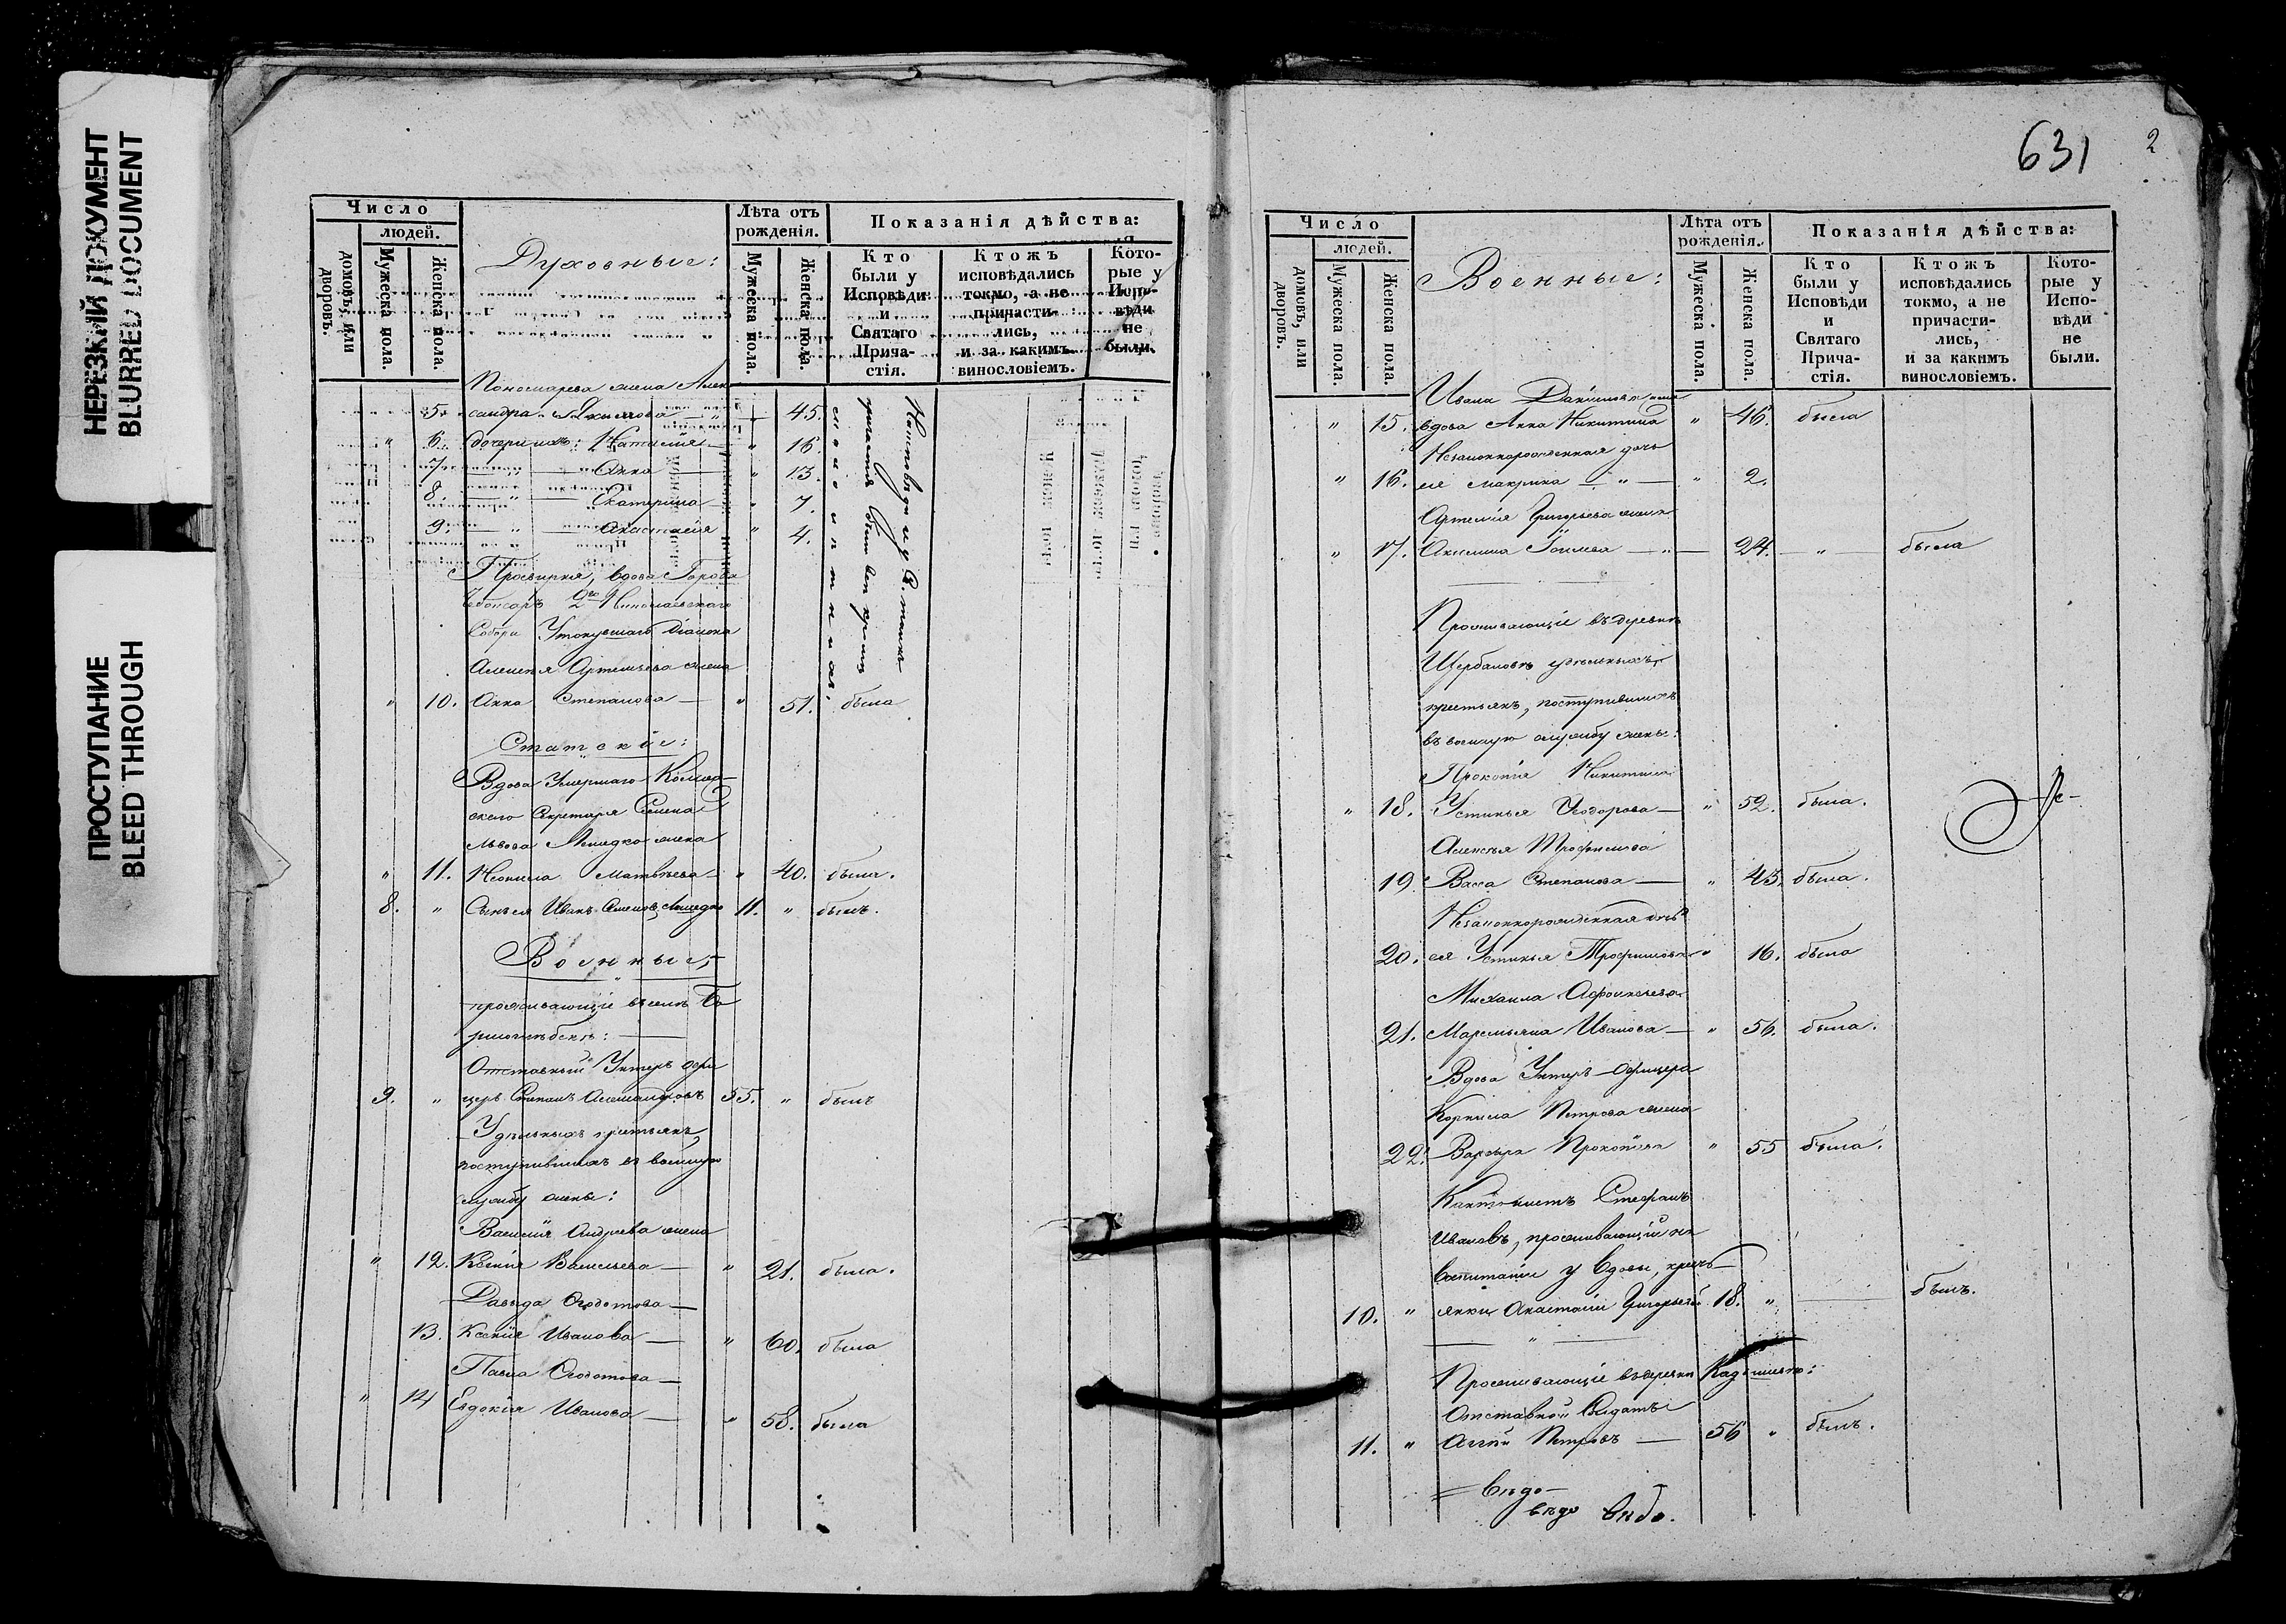 НЕРЕЗКИЙ ДОКУМЕНТ
BLURRED DOCUMENT
ПРОСТУПАНИЕ
BLEED THROUGH
Число
людей.
домовъ, или дворовъ.
Мужеска пола.
Женска пола.
Духовные:
Лѣта отъ рожденія.
Мужеска пола.
Женска пола.
Показанія дѣйства:
Кто были у Исповѣди и Святаго Прича-стія.
Ктожъ исповѣдались токмо, а не причасти-лись, и за какимъ винословіемъ.
Кото-рые у Испо-вѣди не были.
Пономарева жена Алек
5. сандра 45.
6. дочери ихъ: Наталія " 16.
7. Анна " 13.
8. " Екатерина " 7.
9. " Анастасія " 4.
На исповѣди и у С. таинъ
причастія были всѣ кромѣ
Просвирня, вдова Города
2го Николаевскаго
Собора Умершаго Діакона
Алексѣя Артемьева жена
" 10. Анна Степанова — " 51. была
Статскіе:
Вдова Умершаго Коллеж-
скаго Секретаря Семена
Львова жена
" 11. Неонила Матвѣева — " 40. была.
8. " Сынъ ея Иванъ Семеновъ 11. " былъ.
Военные,
проживающіе въ селѣ Бо
рисоглѣбскѣ:
Отставный Унтеръ офи
9. " церъ Степанъ Александровъ 55. " былъ
Удѣльныхъ крестьянъ,
поступившихъ въ военную
службу жены:
Василія Андреева жена
" 12. Ксенія Васильева — " 21. была.
Давыда Ѳедотова —
13. Ксенія Иванова — " 60. была
Павла Ѳедотова —
" 14 Евдокія Иванова — " 58. была
631
2
Число
людей.
домовъ, или дворовъ.
Мужеска пола.
Женска пола.
Военные:
Лѣта отъ рожденія.
Мужеска пола.
Женска пола.
Показанія дѣйства:
Кто были у Исповѣди и Святаго Прича-стія.
Ктожъ исповѣдались токмо, а не причасти-лись, и за какимъ винословіемъ.
Кото-рые у Испо-вѣди не были.
Ивана Данилова жена
" 15. вдова Анна Никитина " 46. была
Незаконнорожденная дочь
" 16. ея Макрина — " — " 2.
Артемія Григорьева жена
" 17. Акилина — " — 24. " была
Проживающіе въ деревнѣ
Щербаковѣ удѣльныхъ
крестьянъ, поступившихъ
въ военную службу жены:
Прокопія Никитина
" 18. Устинья Ѳедорова — " 52. была.
Алексѣя Трофимова
19. Васса Степанова — " 43. была.
Незаконнорожденная дочь
20. ея Устинья Трофимова " 16. была
Михаила Афонасьева
21. Маремьяна Иванова — " 56. была.
Вдова Унтеръ-Офицера
Корнила Петрова жена
22. Варвара Прокопьева " 55 была.
Кантонистъ Стефанъ
Ивановъ, проживающій на
воспитаніи у вдовы, кресть-
10. " янки Анастасіи Григорьевой 18. " — былъ.
Проживающіе въ деревнѣ
Отставной Солдатъ
11. " Петровъ — 56 " былъ.
= Вѣдо-
вѣдо Вѣдо.